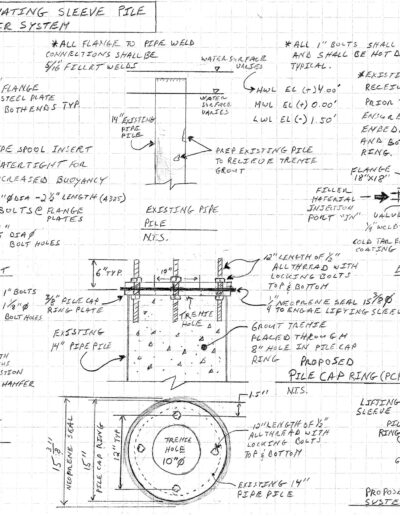 ATING SLEEVE PILE
ER SYSTEM
*ALL FLANGE TO PIPE WELD
CONNECTIONS SHALL BE
5/16 FILLET WELDS
WATER SURFACE
VARIES
HWL EL (+) 4.00'
MWL EL (+) 0.00'
LWL EL (-) 1.50'
WATER
SURFACE
VARIES
14" EXISTING
PIPE
PILE
PREP EXISTING PILE
TO RELIEVE TREMIE
GROUT
EXISTING PIPE
PILE
N.T.S.
*ALL 1" BOLTS SHALL
AND SHALL BE HOT D
TYPICAL.
*EXISTING
RECEIV
PRIOR T
ENSURE
EMBED
AND BO
RING.
FLANGE
18"X18"
FILLER
MATERIAL
INJECTION
PORT "IN"
VALVE
COAL TAR E
COATING
FLANGE
STEEL PLATE
BOTH ENDS TYP.
PIPE SPOOL INSERT
WATERTIGHT FOR
INCREASED BUOYANCY
"Ø DIA - 2 1/2" LENGTH (A325)
BOLTS @ FLANGE
PLATES
DIA Ø
BOLT HOLES
6" TYP.
10"
12" LENGTH OF 1/2"
ALLTHREAD WITH
LOCKING BOLTS
TOP & BOTTOM
1" BOLTS
1 1/8" Ø
BOLT HOLES
3/8" PILE CAP
RING PLATE
TREMIE
HOLE
1/2" NEOPRENE SEAL 15 3/8" Ø
TO ENGAGE LIFTING SLEEVE
EXISTING
14" PIPE PILE
GROUT TREMIE
PLACED THROUGH
8" HOLE IN PILE CAP
RING
PROPOSED
PILE CAP RING (PC
N.T.S.
1.5"
HAMFER
NEOPRENE SEAL
PILE CAP RING
15"
12" TYP.
TREMIE
HOLE
10"Ø
10" LENGTH OF 1/2"
ALLTHREAD WITH
LOCKING BOLTS
TOP & BOTTOM
EXISTING 14"
PIPE PILE
LIFTING
SLEEVE
PIL
RIN
PROPOSE
SYSTE